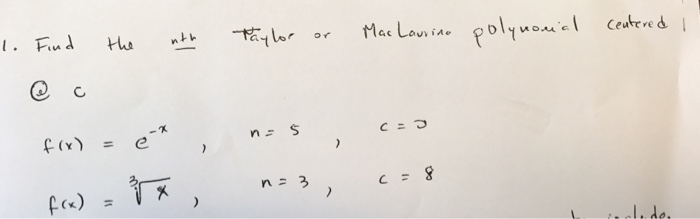 1. Find the nth Taylor or MacLaurine polynomial centered
@ c
f(x) = e^-x , n = 5 , c = 0
f(x) = ∛x , n = 3 , c = 8